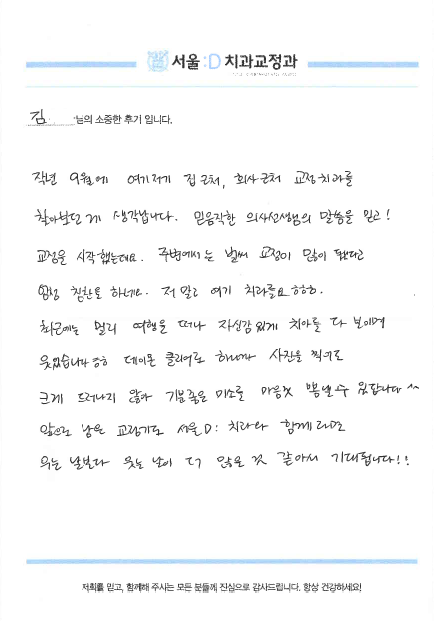 서울:D 치과교정과
김 님의 소중한 후기 입니다.
작년 9월에 여기저기 집근처, 회사근처 교정치과를
찾아보던게 생각납니다. 믿음직한 의사선생님의 말씀을 믿고!
교정을 시작했는데요. 주변에서는 벌써 교정이 많이 됐다고
항상 칭찬을 하네요. 저 말고 여기 치과를요 ㅎㅎㅎ.
최근에는 멀리 여행을 떠나 자신감있게 치아를 다 보이며
웃었습니다 ㅎㅎ 데이몬 클리어로 하니까 사진을 찍어도
크게 드러나지 않아 기분좋은 미소를 마음껏 뽐낼 수 있답니다 ^^
앞으로 남은 교정기도 서울D: 치과와 함께라면
우는 날보다 웃는 날이 더 많을 것 같아서 기대됩니다!!
저희를 믿고, 함께해 주시는 모든 분들께 진심으로 감사드립니다. 항상 건강하세요!